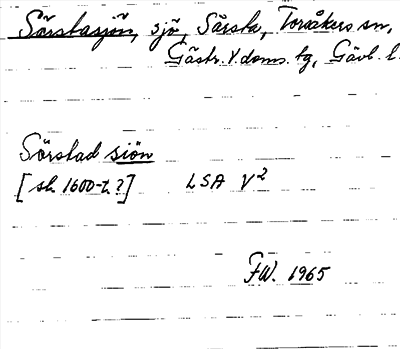 Sörstasjön, sjö, Sörsta, Torsåkers sn,
Gästr. V. doms. tg, Gävl. l.
Sörstad siön
[sl. 1600-t.?] LSA V2
FW. 1965